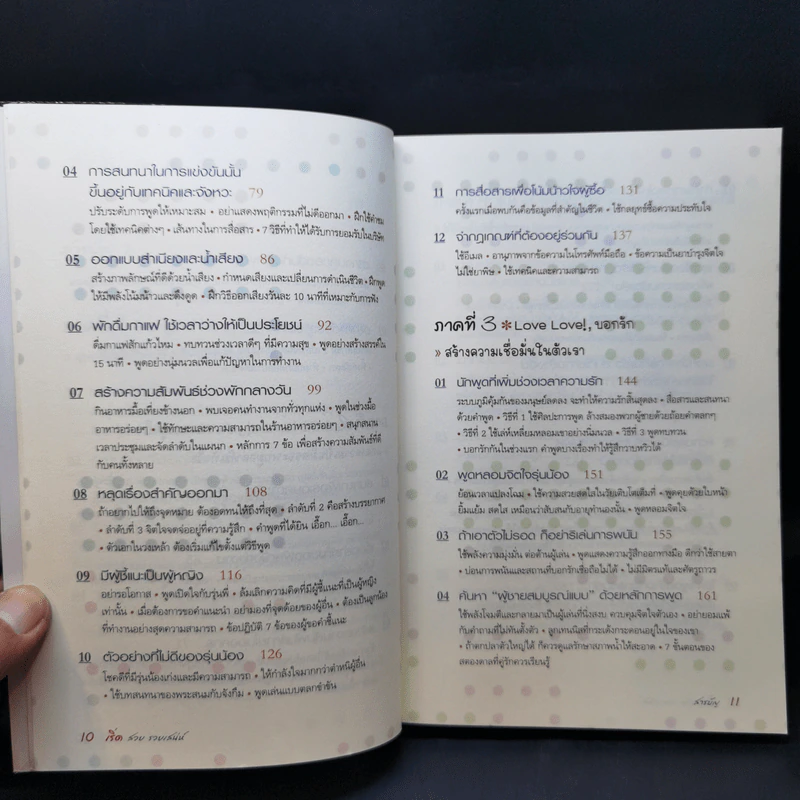 04 การสนทนาในการแข่งขันนั้น
ขึ้นอยู่กับเทคนิคและจังหวะ 79
ปรับระดับการพูดให้เหมาะสม • อย่าแสดงพฤติกรรมที่ไม่ดีออกมา • ฝึกใช้คำชม
โดยใช้เทคนิคต่างๆ • เส้นทางในการสื่อสาร • 7 วิธีที่ทำให้ได้รับการยอมรับในบริษัท
05 ออกแบบสำเนียงและน้ำเสียง 86
สร้างภาพลักษณ์ที่ดีด้วยน้ำเสียง • กำหนดเสียงและเปลี่ยนการดำเนินชีวิต • ฝึกพูด
ให้มีพลังโน้มน้าวและดึงดูด • ฝึกวิธีออกเสียงวันละ 10 นาทีที่เหมาะกับการฟัง
06 พักดื่มกาแฟ ใช้เวลาว่างให้เป็นประโยชน์ 92
ดื่มกาแฟสักแก้วไหม • ทบทวนช่วงเวลาดีๆ ที่มีความสุข • พูดอย่างสร้างสรรค์ใน
15 นาที • พูดอย่างนุ่มนวลเพื่อแก้ปัญหาในการทำงาน
07 สร้างความสัมพันธ์ช่วงพักกลางวัน 99
กินอาหารมื้อเที่ยงข้างนอก • พบเจอคนทำงานจากทั่วทุกแห่ง • พูดในช่วงมื้อ
อาหารอร่อยๆ • ใช้ทักษะและความสามารถในร้านอาหารอร่อยๆ • สนุกสนาน
เวลาประชุมและจัดลำดับในแผนก • หลักการ 7 ข้อ เพื่อสร้างความสัมพันธ์ที่ดี
กับคนทั้งหลาย
08 หลุดเรื่องสำคัญออกมา 108
ถ้าอยากไปให้ถึงจุดหมาย ต้องอดทนให้ถึงที่สุด • ลำดับที่ 2 คือสร้างบรรยากาศ
• ลำดับที่ 3 จิตใจจดจ่ออยู่ที่ความรู้สึก • คำพูดที่ได้ยิน เอื๊อก... เอื๊อก...
• ตัวเอกในวงเหล้า ต้องเริ่มแก้ไขตั้งแต่วิธีพูด
09 มีผู้ชี้แนะเป็นผู้หญิง 116
อย่ารอโอกาส • พูดเปิดใจกับรุ่นพี่ • ล้มเลิกความคิดที่มีผู้ชี้แนะที่เป็นผู้หญิง
เท่านั้น • เมื่อต้องการขอคำแนะนำ อย่ามองที่จุดด้อยของผู้อื่น • ต้องเป็นลูกน้อง
ที่ทำงานอย่างสุดความสามารถ • ข้อปฏิบัติ 7 ข้อของผู้ขอคำชี้แนะ
10 ตัวอย่างที่ไม่ดีของรุ่นน้อง 126
โชคดีที่มีรุ่นน้องเก่งและมีความสามารถ • ให้กำลังใจมากกว่าตำหนิผู้อื่น
• ใช้บทสนทนาของพระสนมกับจังกึม • พูดเล่นแบบตลกขำขัน
10 เริ่ด สวย รวยเสน่ห์
11 การสื่อสารเพื่อโน้มน้าวใจผู้ซื้อ 131
ครั้งแรกเมื่อพบกันคือข้อมูลที่สำคัญในชีวิต • ใช้กลยุทธ์ซื้อความประทับใจ
12 จำกฎเกณฑ์ที่ต้องอยู่ร่วมกัน 137
ใช้อีเมล • อานุภาพจากข้อความในโทรศัพท์มือถือ • ข้อความเป็นยาบำรุงจิตใจ
ไม่ใช่ยาพิษ • ใช้เทคนิคและความสามารถ
ภาคที่ 3 * Love Love!, บอกรัก
» สร้างความเชื่อมั่นในตัวเรา
01 นักพูดที่เพิ่มช่วงเวลาความรัก 144
ระบบภูมิคุ้มกันของมนุษย์ลดลง จะทำให้ความรักสิ้นสุดลง • สื่อสารและสนทนา
ด้วยคำพูด • วิธีที่ 1 ใช้ศิลปะการพูด ล้างสมองพวกผู้ชายด้วยถ้อยคำตลกๆ
• วิธีที่ 2 ใช้เล่ห์เหลี่ยมหลอมเขาอย่างนิ่มนวล • วิธีที่ 3 พูดทบทวน
• บอกรักกันในช่วงแรก คำพูดบางเรื่องทำให้รู้สึกวาบหวิวได้
02 พูดหลอมจิตใจรุ่นน้อง 151
ย้อนเวลาแปลงโฉม • ใช้ความสวยสดใสในวัยเติบโตเต็มที่ • พูดคุยด้วยใบหน้า
ยิ้มแย้ม สดใส เหมือนว่าสับสนกับอายุทำนองนั้น • พูดหลอมจิตใจ
03 ถ้าเอาตัวไม่รอด ก็อย่าริเล่นการพนัน 155
ใช้พลังความมุ่งมั่น ต่อต้านผู้เล่น • พูดแสดงความรู้สึกออกทางมือ ดีกว่าใช้สายตา
• บ่อนการพนันและสถานที่บอกรักเชื่อถือไม่ได้ • ไม่มีมิตรแท้และศัตรูถาวร
04 ค้นหา “ผู้ชายสมบูรณ์แบบ” ด้วยหลักการพูด 161
ใช้พลังโจมตีและกลายมาเป็นผู้เล่นที่นิ่งสงบ ควบคุมจิตใจตัวเอง • อย่ายอมแพ้
กับคำถามที่ไม่ทันตั้งตัว • ลูกเทนนิสที่กระเด้งกระดอนอยู่ในใจของเขา
• ถ้าตกปลาตัวใหญ่ได้ ก็ควรดูแลรักษาสภาพน้ำให้สะอาด • 7 ขั้นตอนของ
สตอดาลที่คู่รักควรเรียนรู้
สารบัญ 11